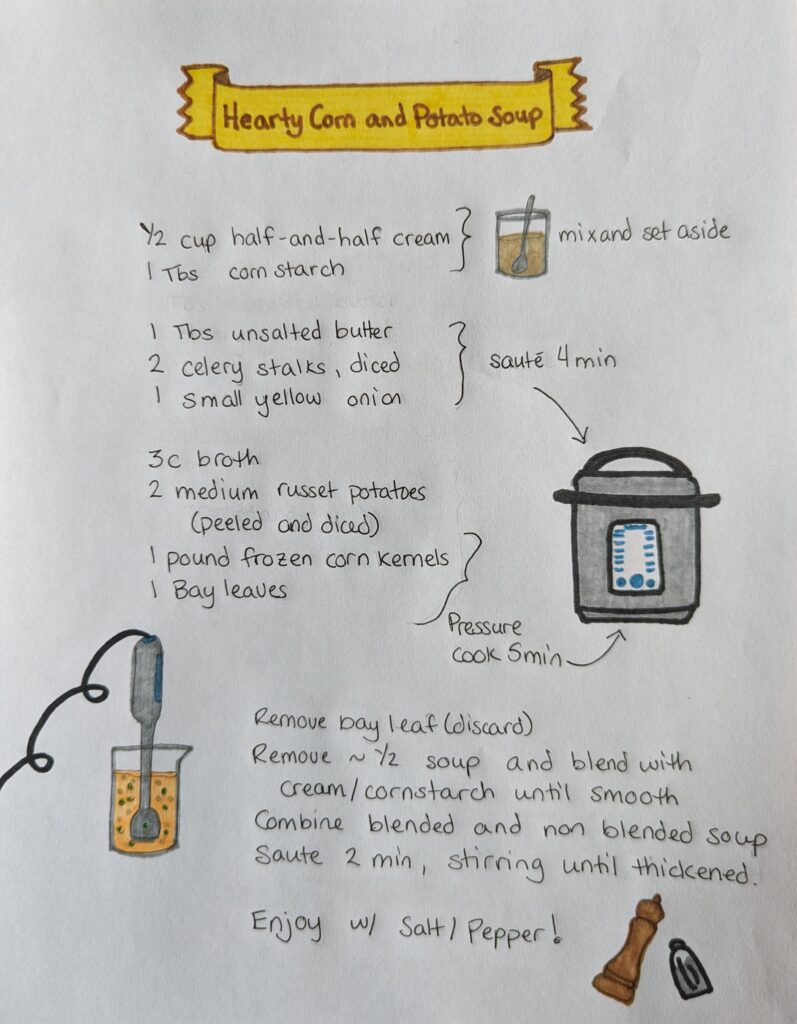 Hearty Corn and Potato Soup
1/2 cup half-and-half cream
1 Tbs corn starch
mix and set aside
1 Tbs unsalted butter
2 celery stalks, diced
1 small yellow onion
sauté 4 min
3c broth
2 medium russet potatoes
(peeled and diced)
1 pound frozen corn kernels
1 Bay leaves
Pressure
cook 5min
Remove bay leaf (discard)
Remove ~ 1/2 soup and blend with
cream/cornstarch until smooth
Combine blended and non blended soup
Saute 2 min, stirring until thickened.
Enjoy w/ Salt/Pepper!